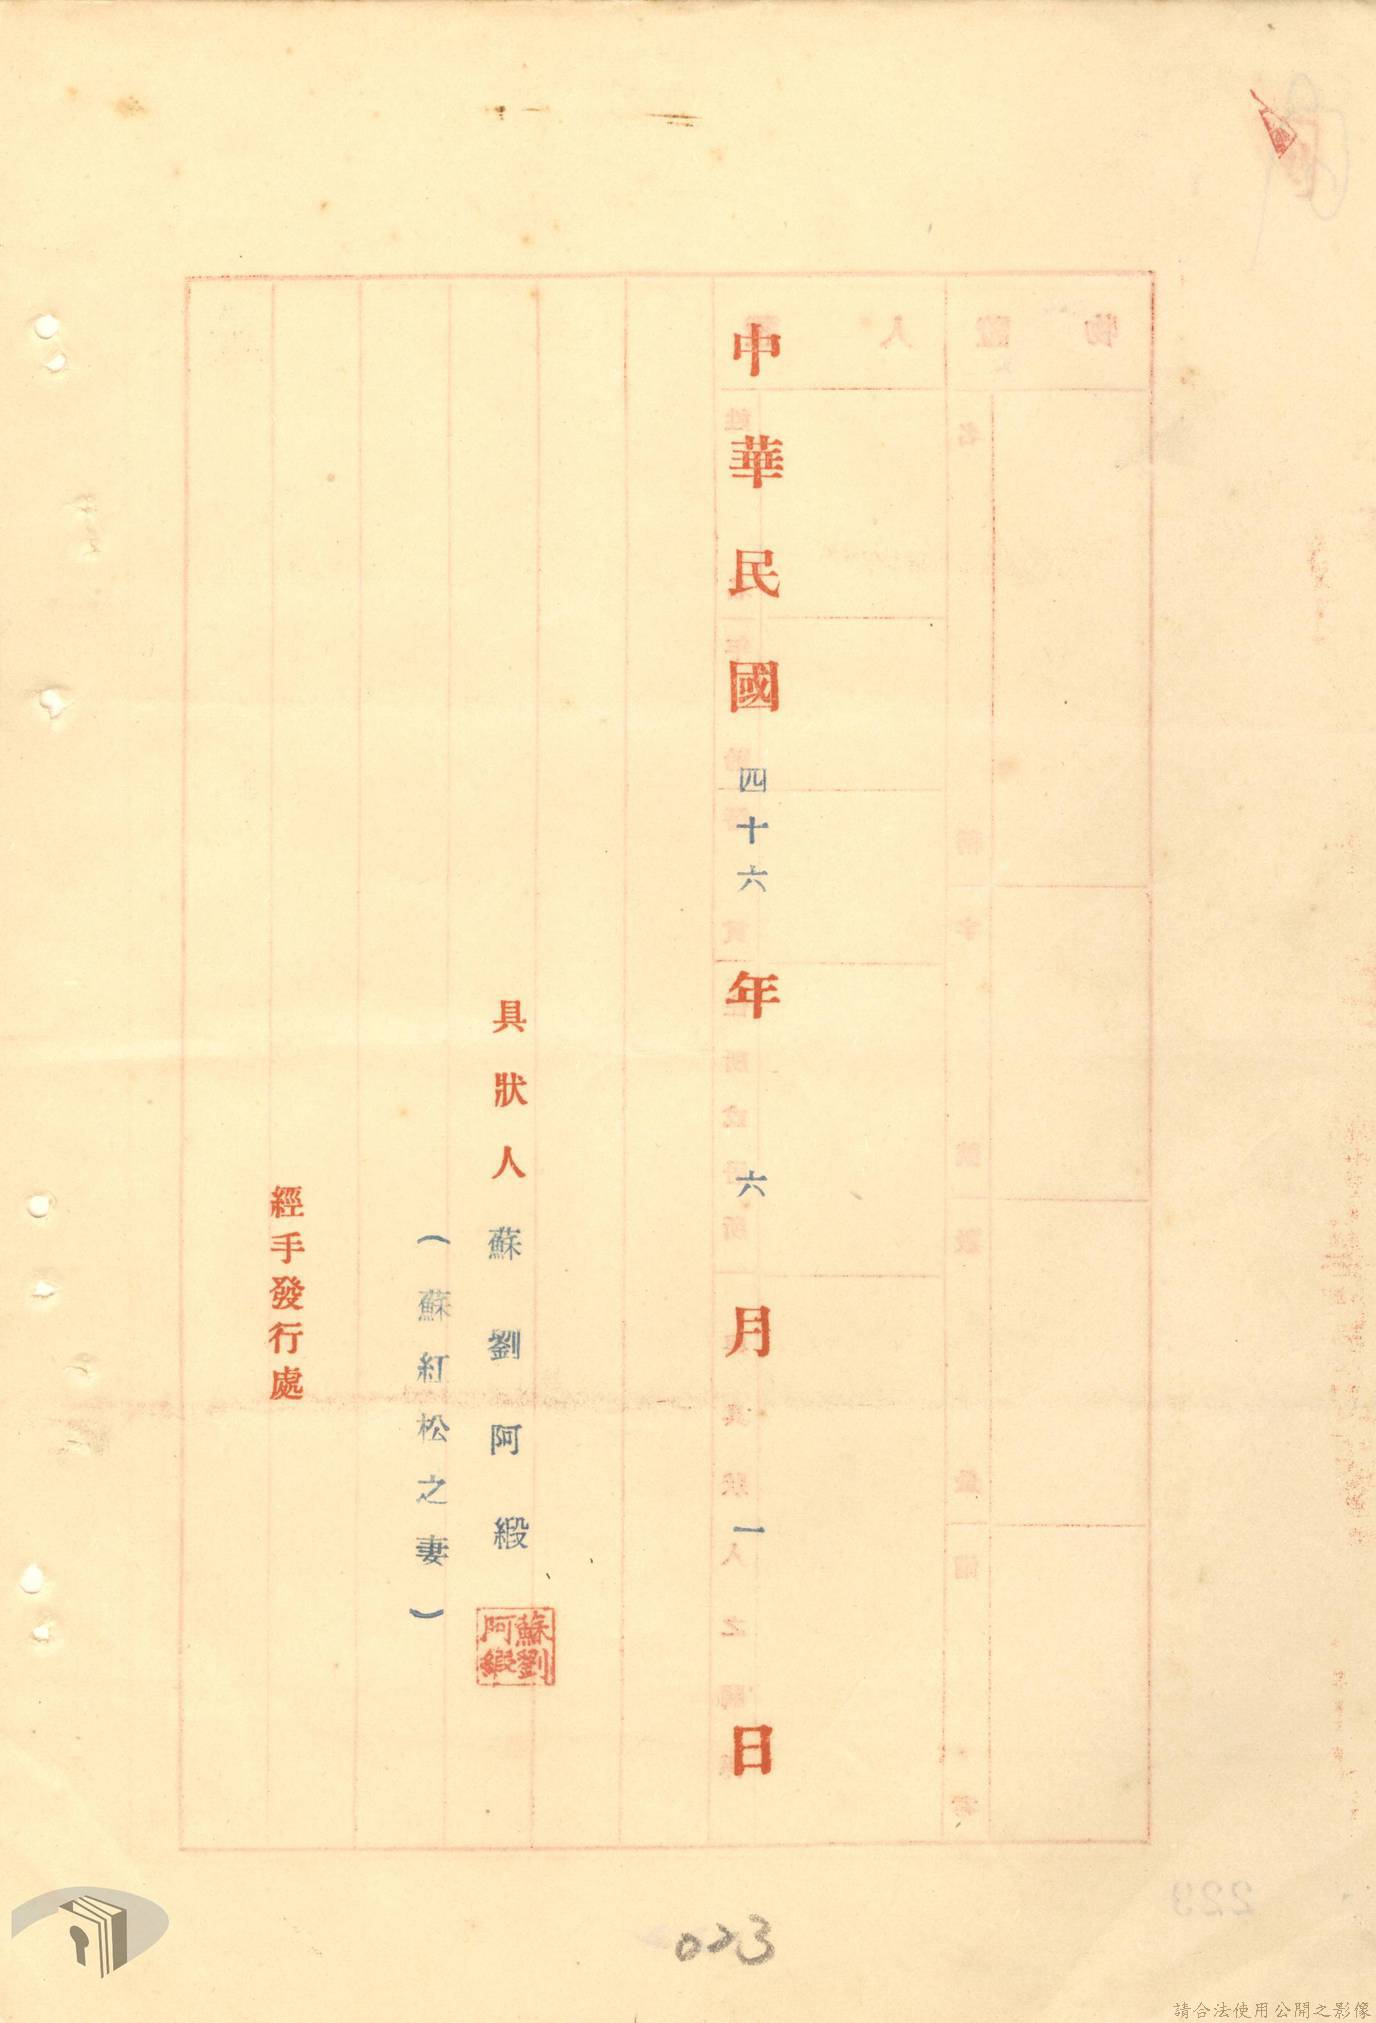 中華民國四十六年六月一日
具狀人蘇劉阿緞
蘇劉阿緞
（蘇紅松之妻）
經手發行處
023
請合法使用公開之影像